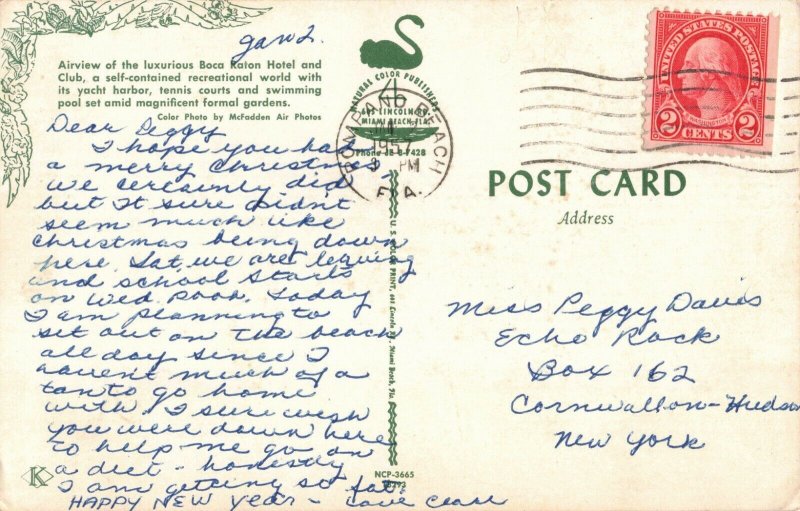 Jan 2.
Airview of the luxurious Boca Raton Hotel and
Club, a self-contained recreational world with
its yacht harbor, tennis courts and swimming
pool set amid magnificent formal gardens.
Color Photo by McFadden Air Photos
Dear Peggy
I hope you had
a merry christmas
we certainly did
but it sure didn't
seem much like
christmas being down
here. Sat. we are leaving
and school starts
on Wed. Pooh. Today
I am plannning to
set out on the beach
all day since I
haven't much of a
tan to go home
with. I sure wish
you were down here
to help me go on
a diet - honestly
I am getting so fat.
HAPPY NEW Year - Love
K
NATURAL COLOR PUBLISHERS
LINCOLN RD.
MIAMI BEACH, FLA.
POMPANO BEACH
1957
PM
FLA.
U.S. COLOR PRINT, Lincoln Rd., Miami Beach, Fla.
NCP-3665
UNITED STATES POSTAGE
WASHINGTON
2 CENTS 2
POST CARD
Address
Miss Peggy Davis
Echo Rock
Box 162
Cornwall-on-Hudson
New York